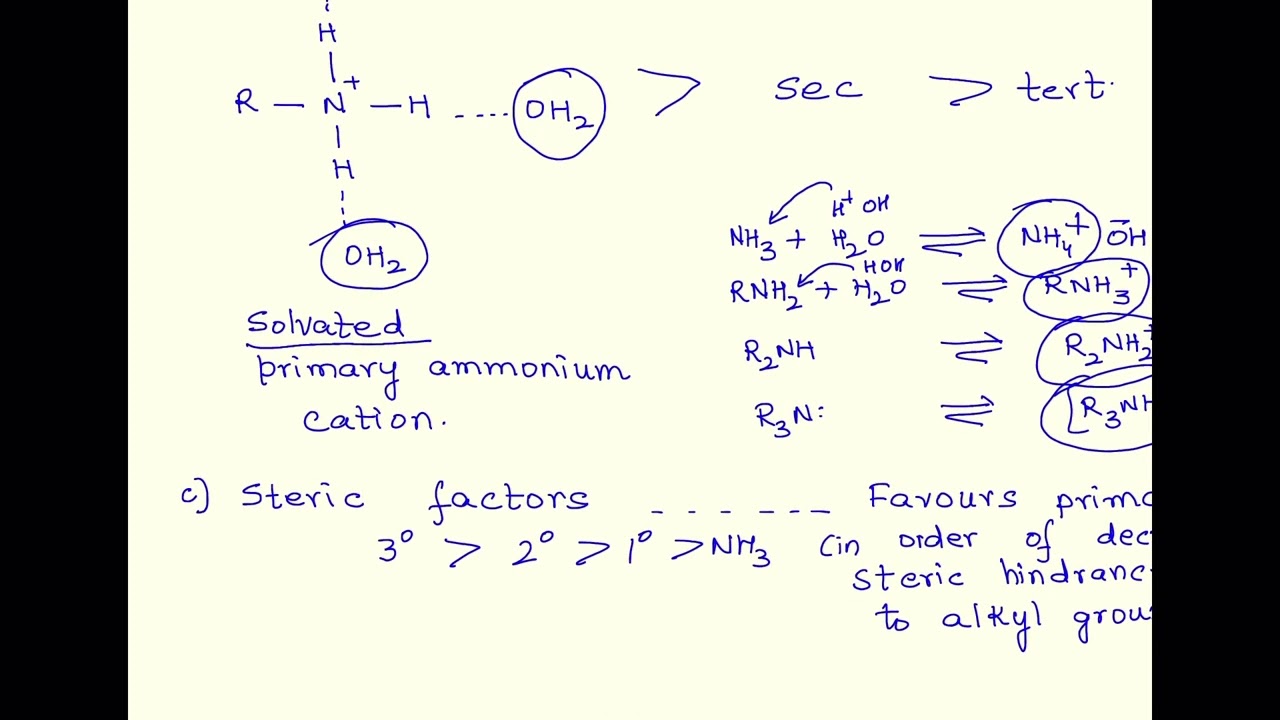 H
R — N⁺ — H ---- OH₂ > sec > tert.
H
OH₂
Solvated
primary ammonium
cation.
H⁺ OH
NH₃ + H₂O ⇌ NH₄⁺ ŌH
HOH
RNH₂ + H₂O ⇌ RNH₃⁺
R₂NH ⇌ R₂NH₂⁺
R₃N: ⇌ [R₃NH
c) Steric factors ------ Favours prim
3° > 2° > 1° > NH₃ (in order of dec
steric hindranc
to alkyl grou